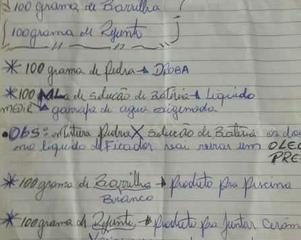 100 grama de Barrilha
100 grama de Rejunte
* 100 grama de pedra → DROBA
* 100 ML de solução de Bateria → Liquido
MEDIR → garrafa de agua oxigenada
• Obs: mistura pedra X solução de Bateria os do
liquido de Ficador vai virar um OLEO
PRE
* 100 grama de Barrilha → Produto pra Piscina
Branco
* 100 grama de Rejunte → Produto pra Juntar Ceram